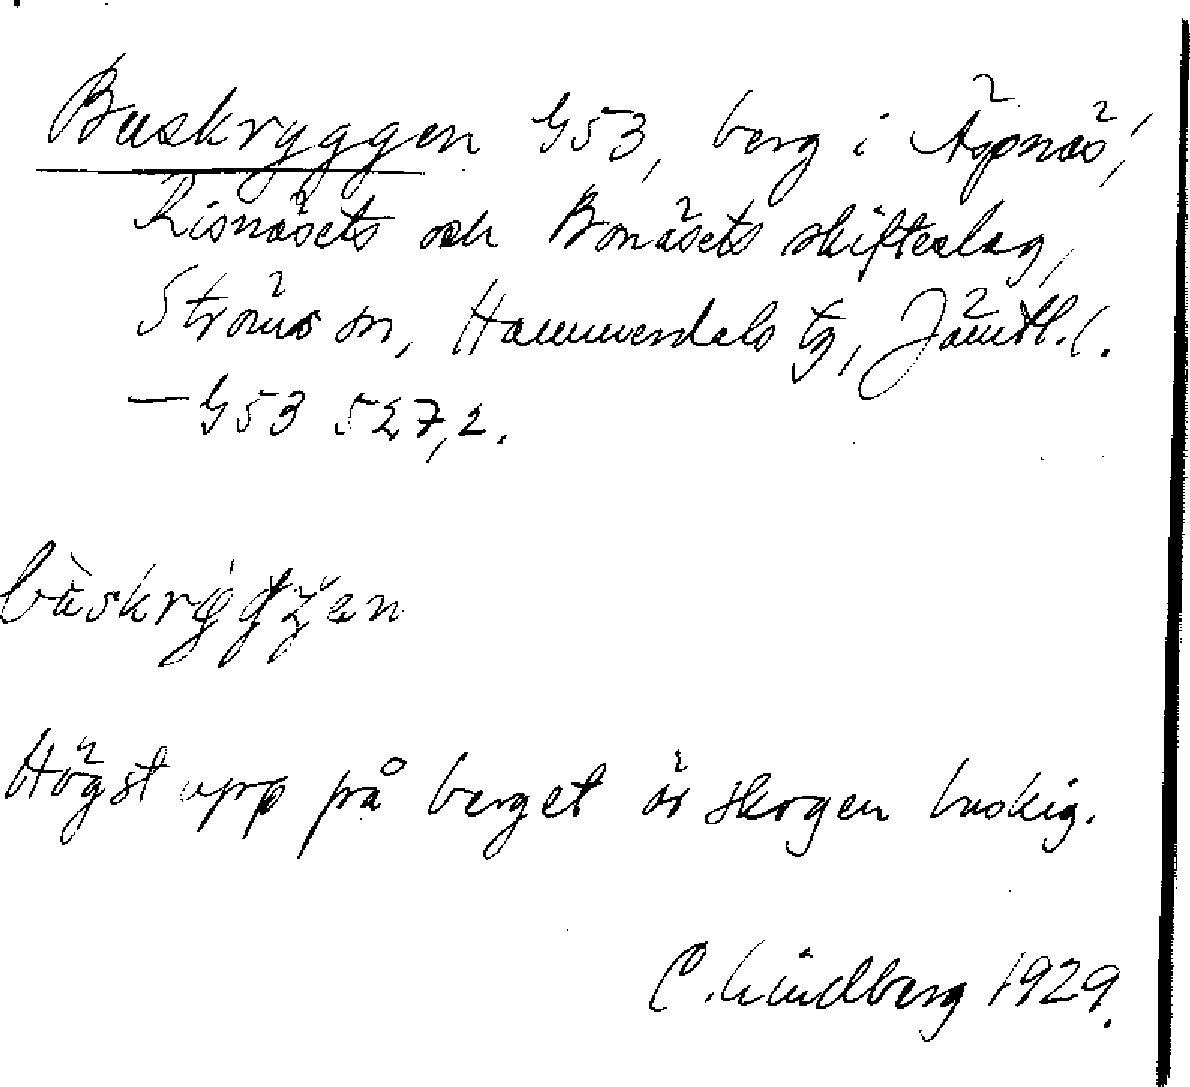 Buskryggen G53, berg i Äspnäs,
Risnäsets och Bonäsets skifteslag,
Ströms sn, Hammerdals tg, Jämtl. l.
— G53 527,2.
Högst upp på berget är skogen buskig.
C. Lindberg 1929.